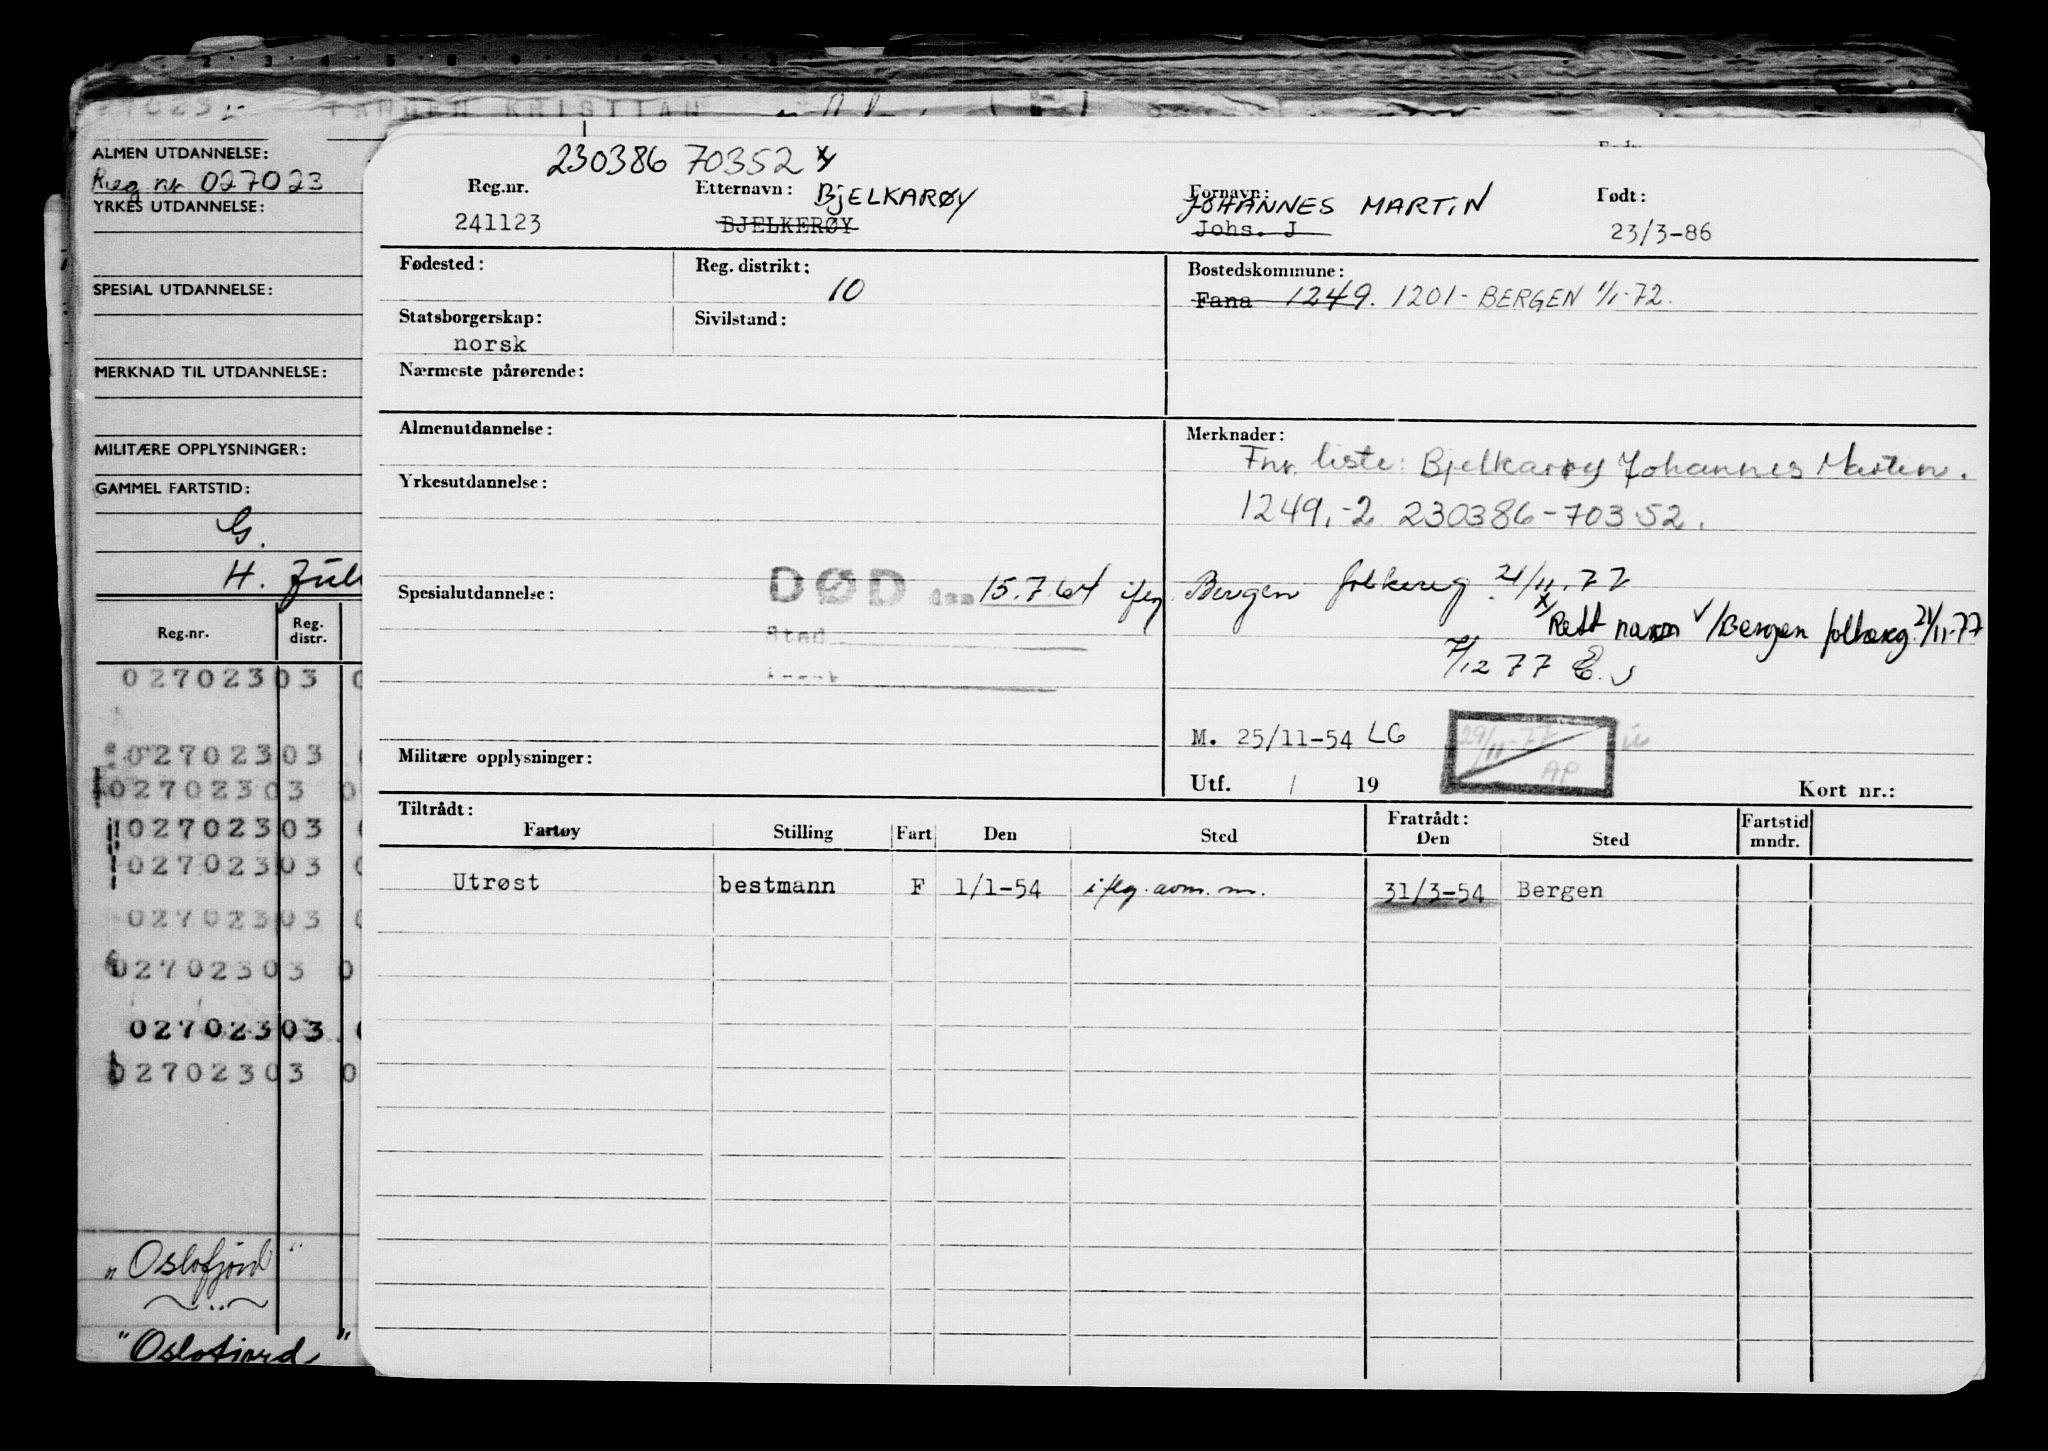 ALMEN UTDANNELSE:
Reg nr 027023
YRKES UTDANNELSE:
SPESIAL UTDANNELSE:
MERKNAD TIL UTDANNELSE:
MILITÆRE OPPLYSNINGER:
GAMMEL FARTSTID:
G.
H.
Reg.nr. Reg. distr.
02702303
02702303
02702303
02702303
02702303
02702303
02702303
02702303
02702303
"Oslofjord"
"Oslofjord"
230386 70352 x
Reg.nr. Etternavn: BJELKARØY Fornavn: JOHANNES MARTIN Født:
241123 BJELKERØY Johs. J 23/3-86
Fødested: Reg. distrikt: 10 Bostedskommune:
Fana 1249. 1201- BERGEN 1/1-72.
Statsborgerskap: norsk Sivilstand:
Nærmeste pårørende:
Almenutdannelse: Merknader:
Fnr. liste: Bjelkarøy Johannes Martin.
Yrkesutdannelse:
1249.-2 230386-70352.
Spesialutdannelse: DØD den 15.7.64 iflg. Bergen folkereg 21/11.77
Sted
x Rett navn v/Bergen folkereg. 21/11-77
7/12 77
M. 25/11-54 LG
29/11-77 AP
Militære opplysninger:
Utf. / 19 Kort nr.:
Tiltrådt: Fratrådt: Fartstid mndr.
Fartøy Stilling Fart Den Sted Den Sted
Utrøst bestmann F 1/1-54 iflg. avm. m. 31/3-54 Bergen